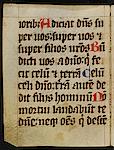 ioribꝫ Adiciat dn̄s su
per uos: super uos et
super filios vr̄os Bn̄
dicti uos a dn̄o: q̄ fe
cit celū et terrā Celū
celi dn̄o: t̄rā autē de
dit filiis hominū Nō
mortui laudabūt te
dn̄e: neqꝫ oēs q̄ descē